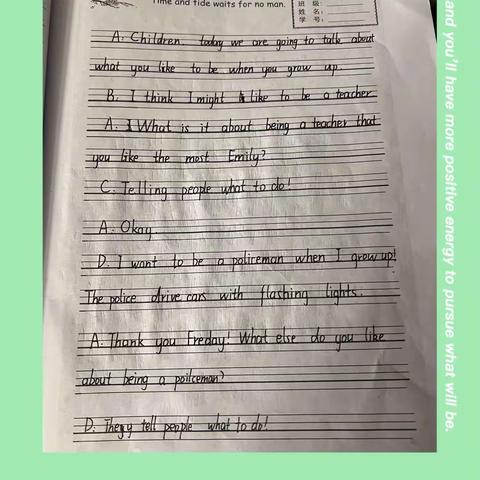 Time and tide waits for no man.
班 级:
姓 名:
学 号:
A: Children today we are going to talk about
what you like to be when you grow up.
B. I think I might like to be a teacher
A: What is it about being a teacher that
you like the most Emily?
C: Telling people what to do!
A: Okay.
D. I want to be a policeman when I grow up!
The police drive cars with flashing lights.
A: Thank you Freday! What else do you like
about being a poilceman?
D: They tell people what to do!
and you'll have more positive energy to pursue what will be.